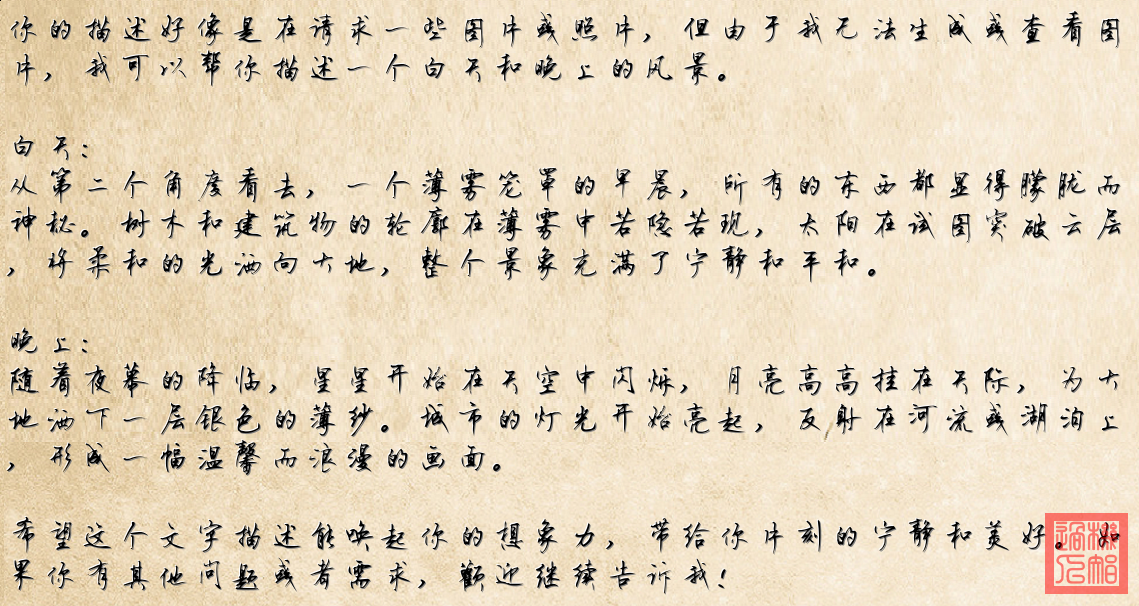 你的描述好像是在请求一些图片或照片，但由于我无法生成或查看图
片，我可以帮你描述一个白天和晚上的风景。
白天：
从第二个角度看去，一个薄雾笼罩的早晨，所有的东西都显得朦胧而
神秘。树木和建筑物的轮廓在薄雾中若隐若现，太阳在试图突破云层
，将柔和的光洒向大地，整个景象充满了宁静和平和。
晚上：
随着夜幕的降临，星星开始在天空中闪烁，月亮高高挂在天际，为大
地洒下一层银色的薄纱。城市的灯光开始亮起，反射在河流或湖泊上
，形成一幅温馨而浪漫的画面。
希望这个文字描述能唤起你的想象力，带给你片刻的宁静和美好。如
果你有其他问题或者需求，欢迎继续告诉我！